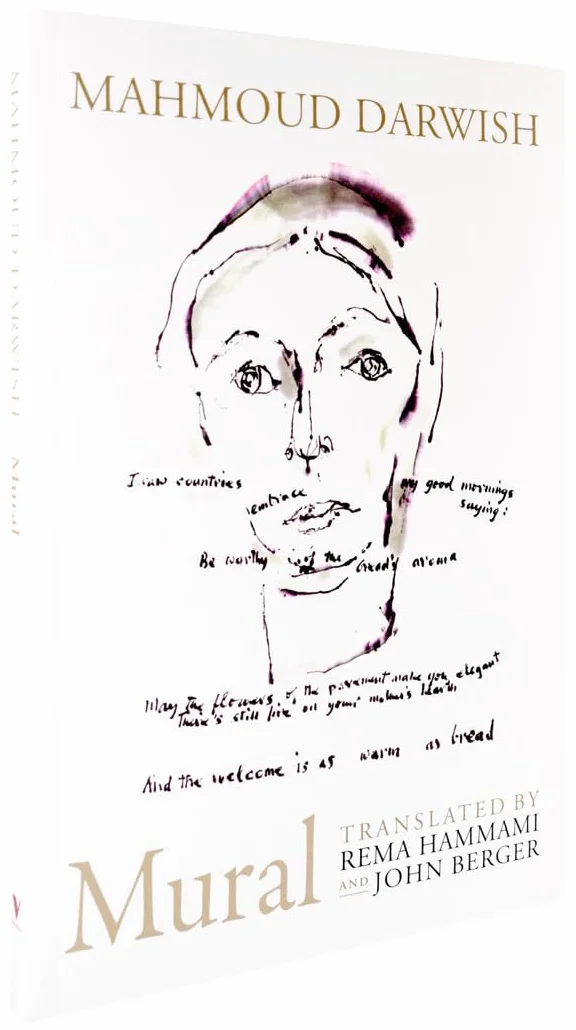 MAHMOUD DARWISH
MAHMOUD DARWISH Mural
I saw countries embrace my good mornings
saying:
Be worthy of the bread's aroma
May the flowers of the pavement make you elegant
There's still fire on your mother's hearth
And the welcome is as warm as bread
Mural
TRANSLATED BY
REMA HAMMAMI
AND JOHN BERGER
V